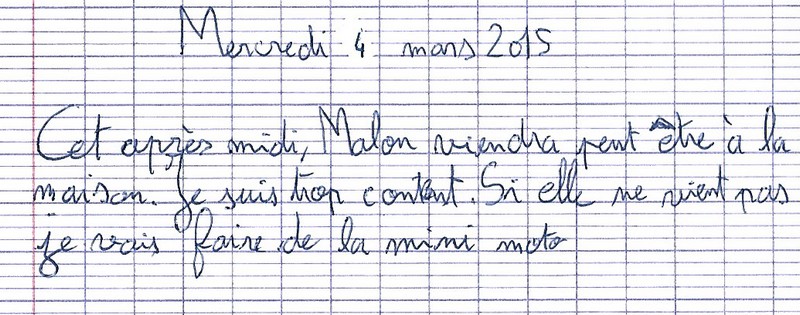 Mercredi 4 mars 2015
Cet après midi, Malon viendra peut être à la
maison. Je suis trop content. Si elle ne vient pas
je vais faire de la mini moto